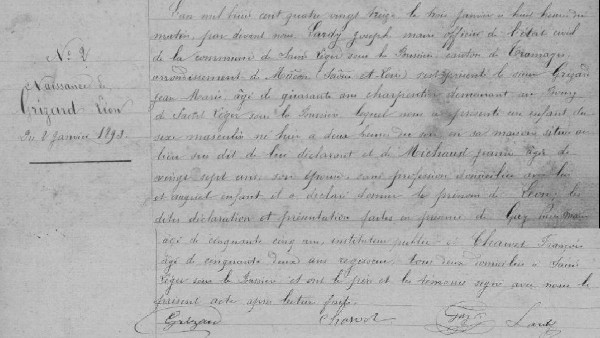 N° 2
Naissance de
Grizard Léon
Du 2 Janvier 1893
L'an mil huit cent quatre vingt treize le trois janvier à huit heures du
matin, par devant nous Lardy Joseph maire officier de l'état civil
de la commune de Saint Léger sous la Bussière canton de Tramayes
arrondissement de Mâcon, Saône et Loire est comparu le sieur Grizard
Jean Marie, âgé de quarante ans charpentier demeurant au Bourg
de Saint Léger sous la Bussière lequel nous a présenté un enfant du
sexe masculin né hier à deux heures du soir en sa maison située au
lieu dit de lui déclarant et de Michaud Jeanne âgée de
vingt sept ans, son épouse, sans profession domiciliée avec lui
et auquel enfant il a déclaré donner le prénom de Léon; les
dites déclaration et présentation faites en présence de Gaz
âgé de cinquante cinq ans, instituteur public et Charvet François
âgé de cinquante deux ans régisseur, tous deux domiciliés à Saint
Léger sous la Bussière et ont le père et les témoins signé avec nous le
présent acte après lecture faite.
Grizard Charvet Gaz Lardy